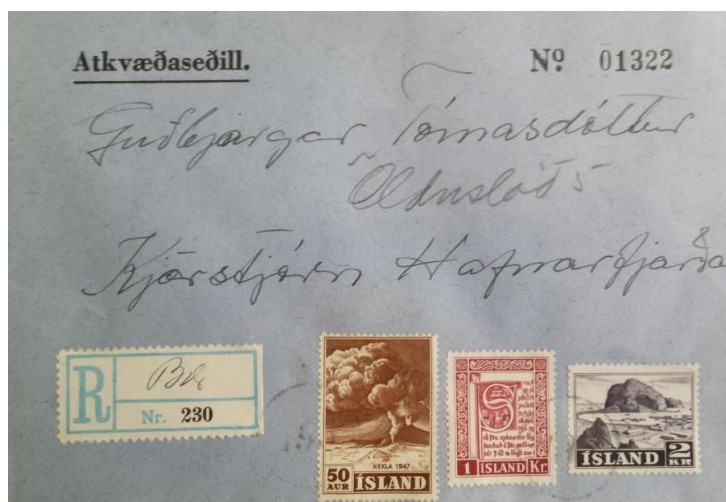 Atkvæðaseðill.
Nº 01322
Guðbjargar Tómasdóttur
Ölduslóð 5
Kjörstjórn Hafnarfjarða
R
Nr. 230
HEKLA 1947
50
AUR
ÍSLAND
1 ÍSLAND Kr.
ÍSLAND 2
KR